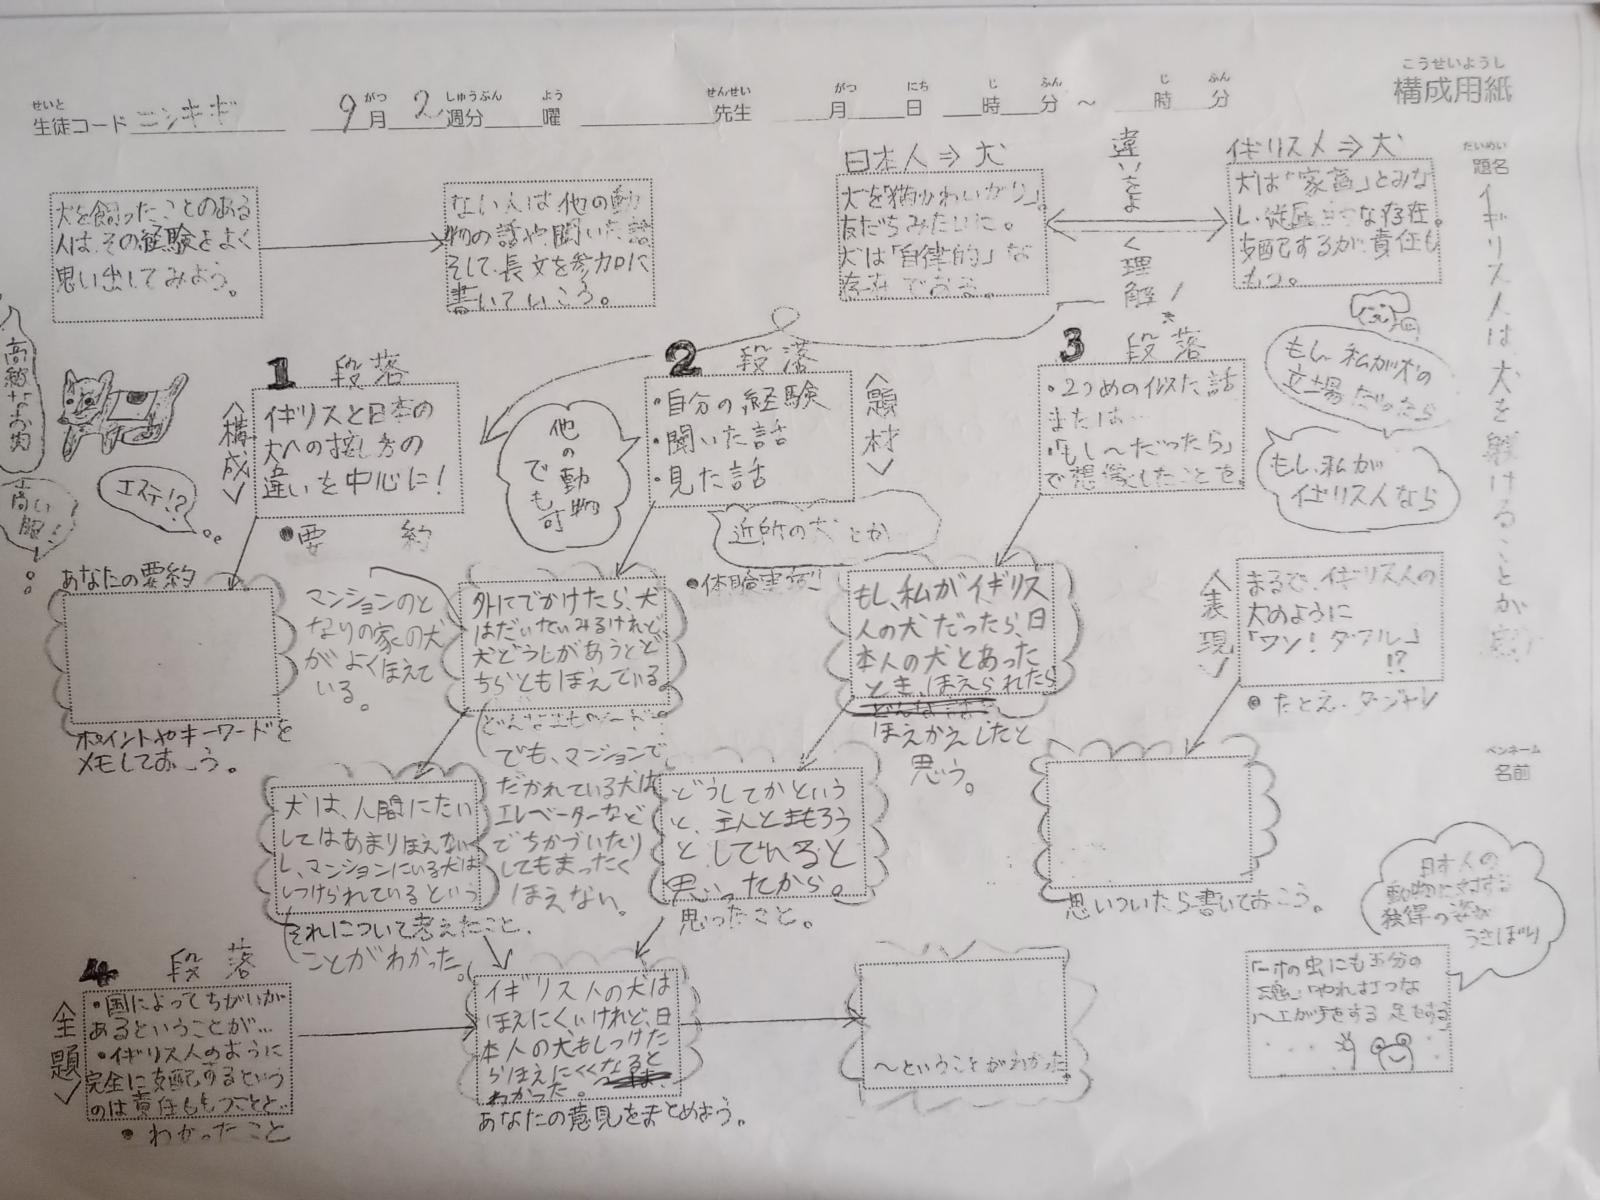 こうせいようし
構成用紙
せいと
生徒コード ニシキギ
がつ しゅうぶん よう
9月 2週分 曜
せんせい
先生
がつ にち じ ふん じ ふん
月 日 時 分 ～ 時 分
だいめい
題名
イギリス人は犬を躾けることが
ペンネーム
名前
犬を飼ったことのある
人は、その経験をよく
思い出してみよう。
ない人は他の動
物の話や聞いた話
そして、長文を参加に
書いていこう。
日本人⇒犬
犬を「猫かわいがり」。
友だちみたいに。
犬は「自律的」な
存在である。
違いをよく理解！
イギリス人⇒犬
犬は「家畜」とみな
し、従属的な存在。
支配するが、責任も
もつ。
高級なお肉
高い服！
エステ！？
1 段落
<構成>
イギリスと日本の
犬への接し方の
違いを中心に！
●要 約
他の動物
でも可
2 段落
<題材>
・自分の経験
・聞いた話
・見た話
近所の犬とか
●体験実例
3 段落
・2つめの似た話
または…
・「もし～だったら」
で想像したことを。
もし私が犬の
立場だったら
もし、私が
イギリス人なら
<表現>
まるで、イギリス人の
犬のように
「ワン！ダフル」
!?
●たとえ・ダジャレ
あなたの要約
ポイントやキーワードを
メモしておこう。
マンションのと
なりの家の犬
がよくほえて
いる。
外にでかけたら、犬
はだいたいみるけれど
犬どうしがあうとど
ちらともほえている。
でも、マンションで
だかれている犬は
エレベーターなど
でちかづいたり
してもまったく
ほえない。
もし、私がイギリス
人の犬だったら、日
本人の犬とあった
とき、ほえられたら
ほえかえしたと
思う。
犬は、人間にたい
してはあまりほえない
し、マンションにいる犬は
しつけられているという
それについて考えたこと、
ことがわかった。
どうしてかという
と、主人とまもろう
としていると
思ったから。
思ったこと。
思いついたら書いておこう。
4 段落
<主題>
・国によってちがいが
あるということが…
・イギリス人のように
完全に支配するという
のは責任ももつことと…
●わかったこと
イギリス人の犬は
ほえにくいけれど、日
本人の犬もしつけた
らほえにくくなると
わかった。
あなたの意見をまとめよう。
～ということがわかった。
日本人の
動物に対する
独得の姿が
うきぼり
「一寸の虫にも五分の
魂」「やれ打つな
ハエが手をする足をする